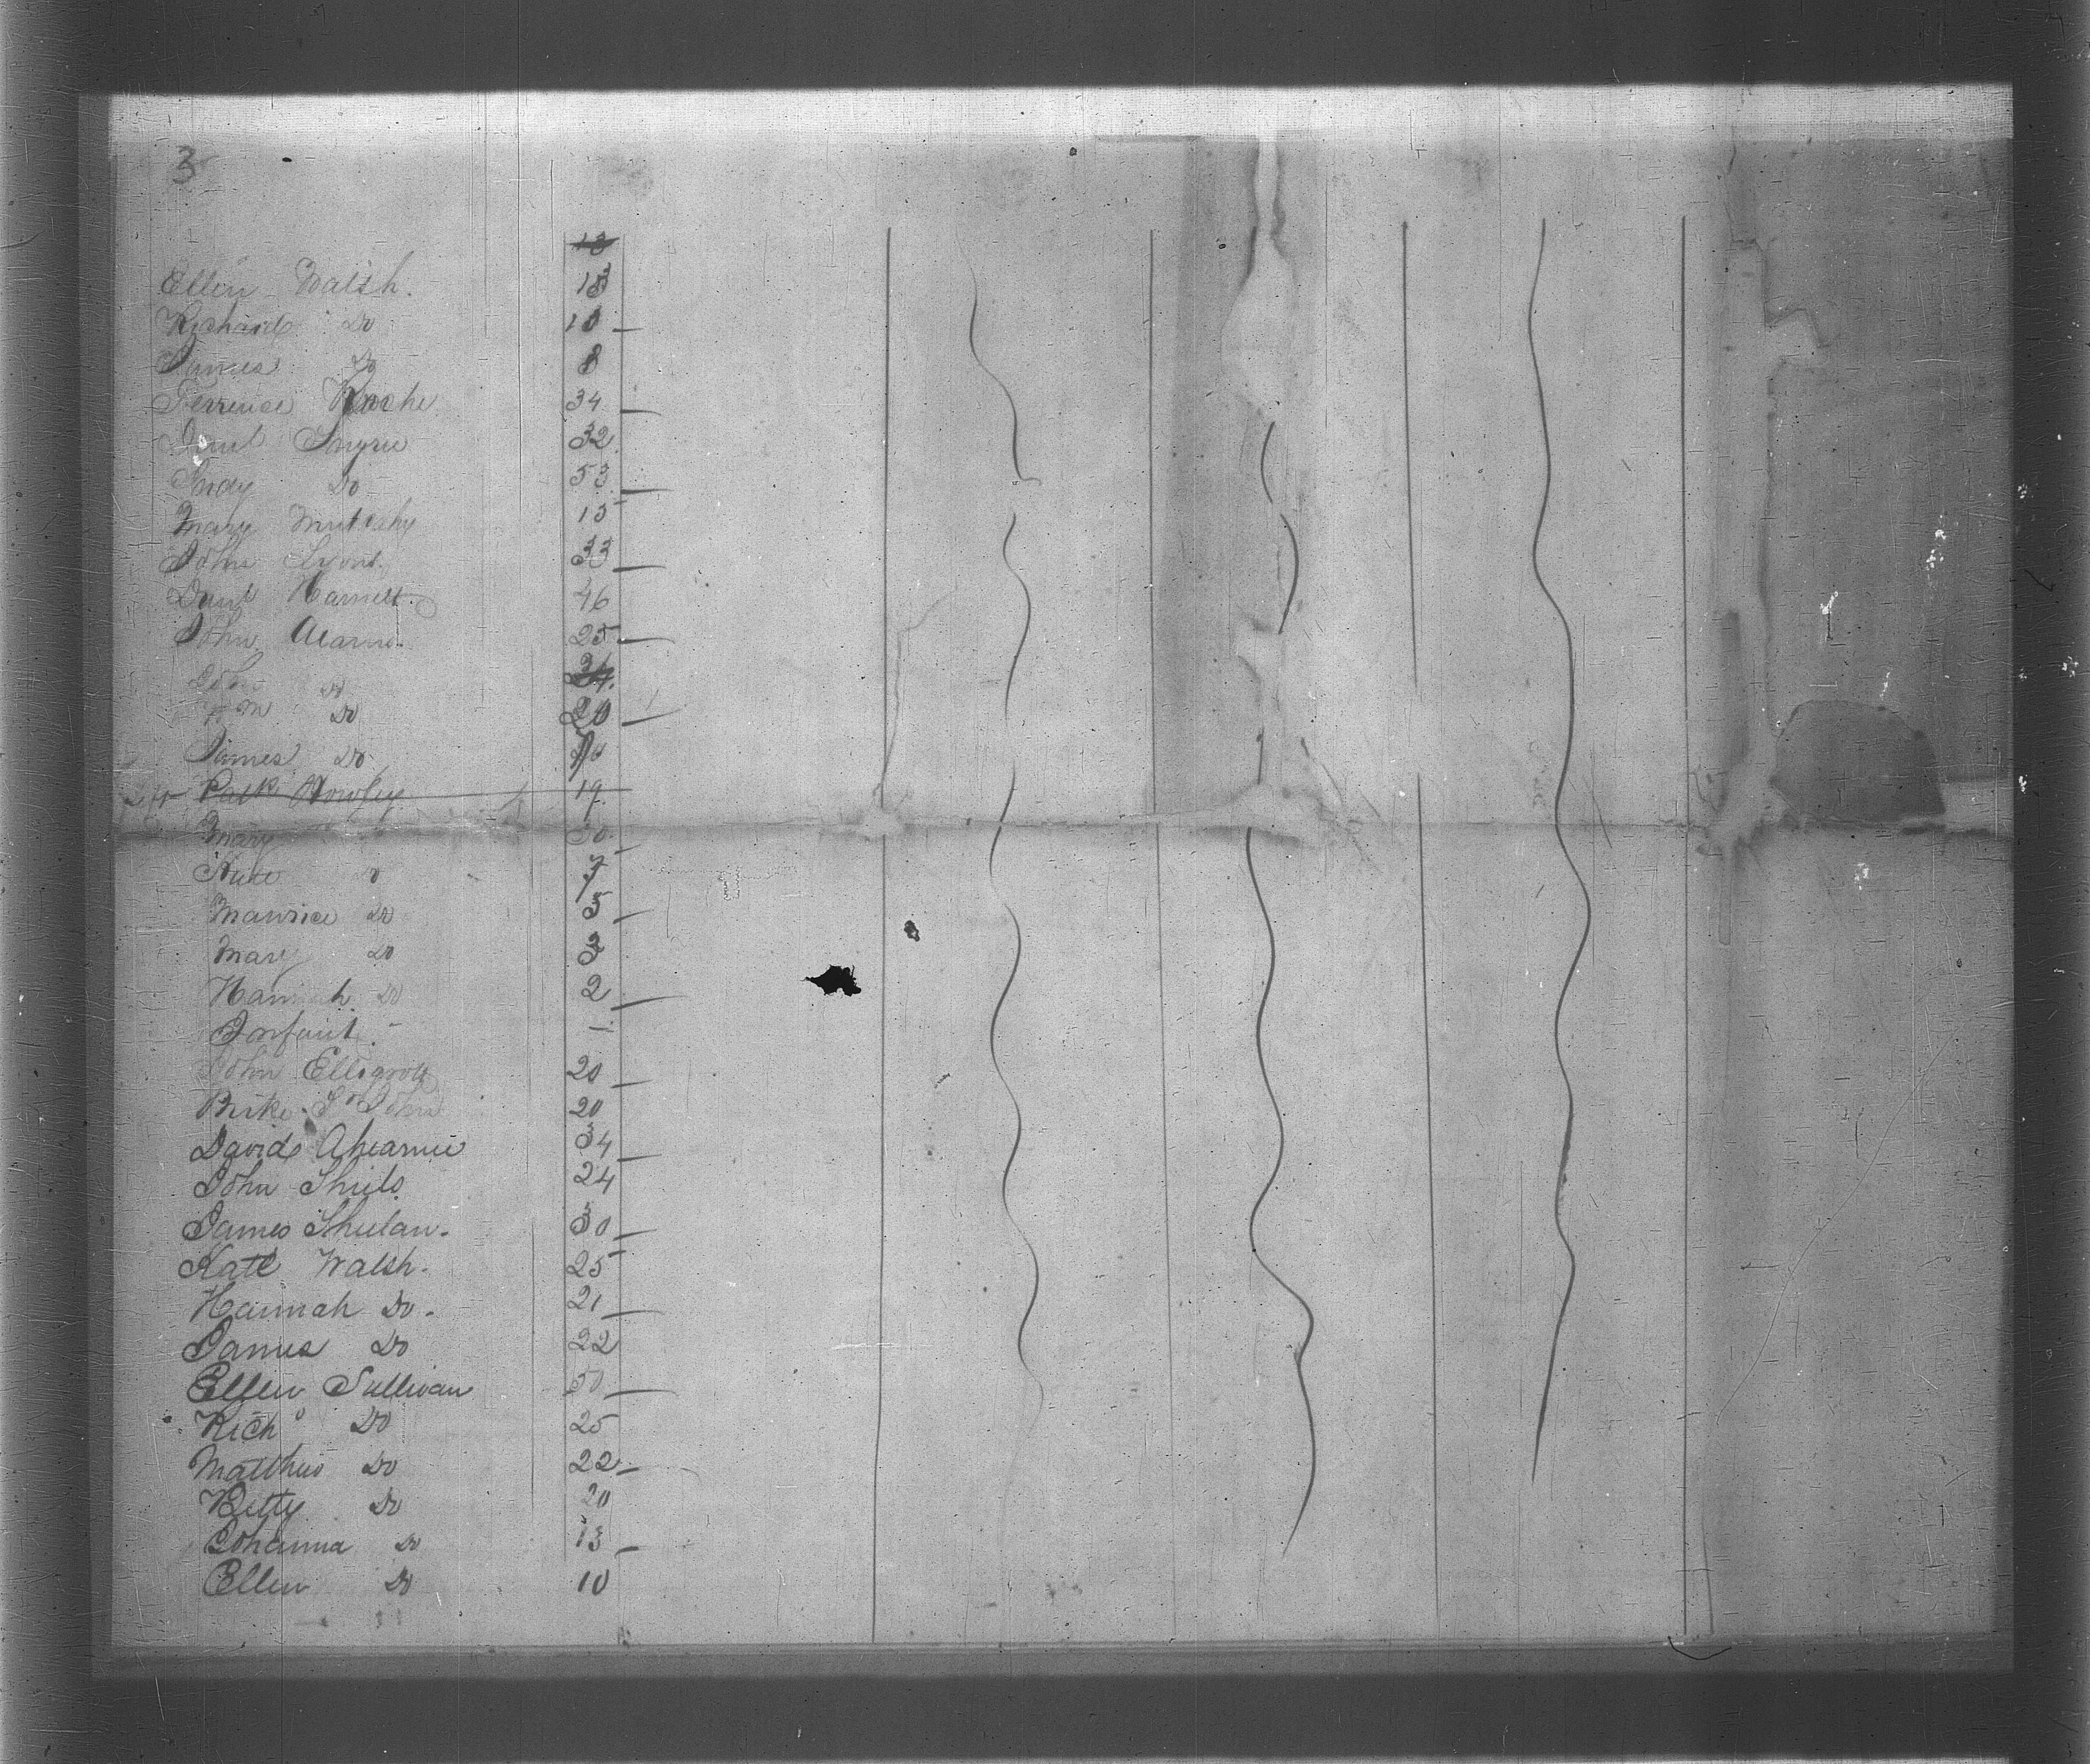 3
13
Ellen Walsh. 18
Richard Do 10
James Do 8
Terrence Roche 34
32
Judy Do 53
Mary 15
John Lyons. 33
Danl Harnett 46
John Aearne. 25
John Do
Wm Do 20
James Do
Patk 19
Mary 30
Do 7
Maurice Do 5
Mary Do 3
Hannah Do 2
Infant. 1
John 20
20
David Ahearne 34
John Shiels 24
James Sheelan. 30
Kate Walsh. 25
Hannah Do. 21
James Do 22
Ellen Sullivan 50
Richd Do 25
Matthew Do 22
Betty Do 20
Johanna Do 13
Ellen Do 10